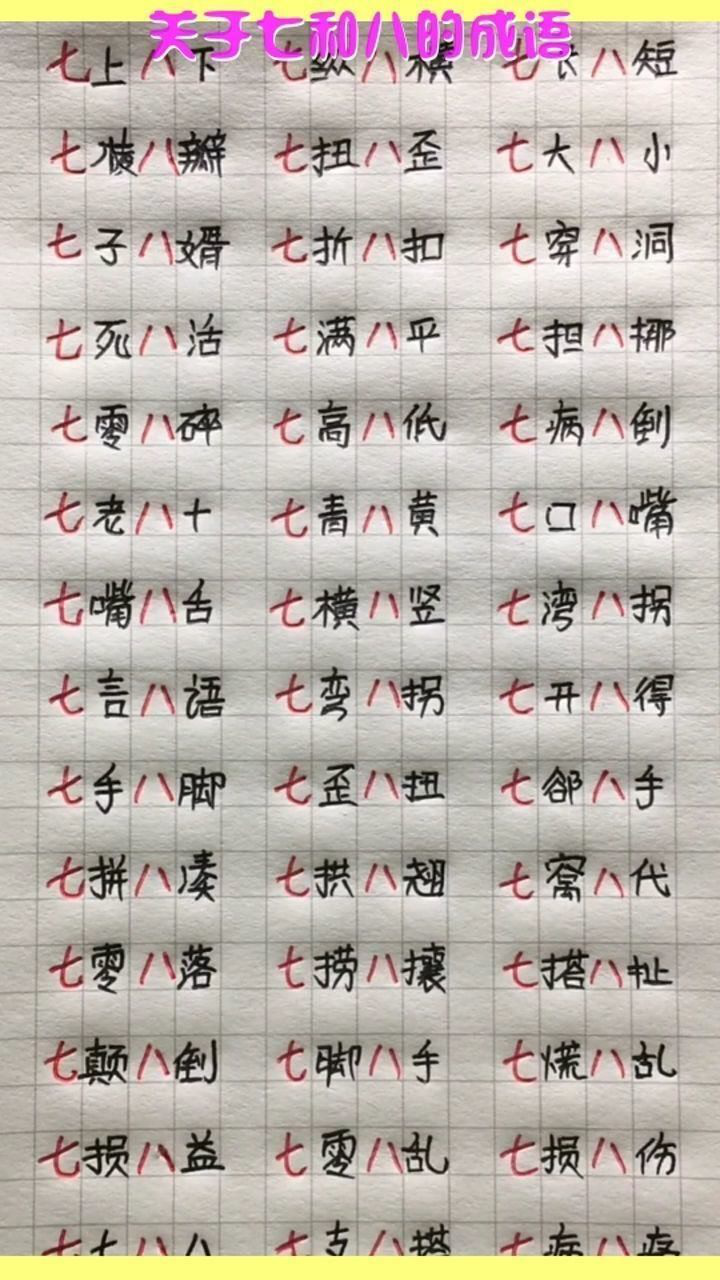 关于七和八的成语
七上八下 七纵八横 七长八短
七棱八瓣 七扭八歪 七大八小
七子八婿 七折八扣 七穿八洞
七死八活 七满八平 七担八挪
七零八碎 七高八低 七病八倒
七老八十 七青八黄 七口八嘴
七嘴八舌 七横八竖 七湾八拐
七言八语 七弯八拐 七开八得
七手八脚 七歪八扭 七郤八手
七拼八凑 七拱八翘 七窝八代
七零八落 七捞八攘 七搭八扯
七颠八倒 七脚八手 七慌八乱
七损八益 七零八乱 七损八伤
七七八八 七支八搭 七病八痛